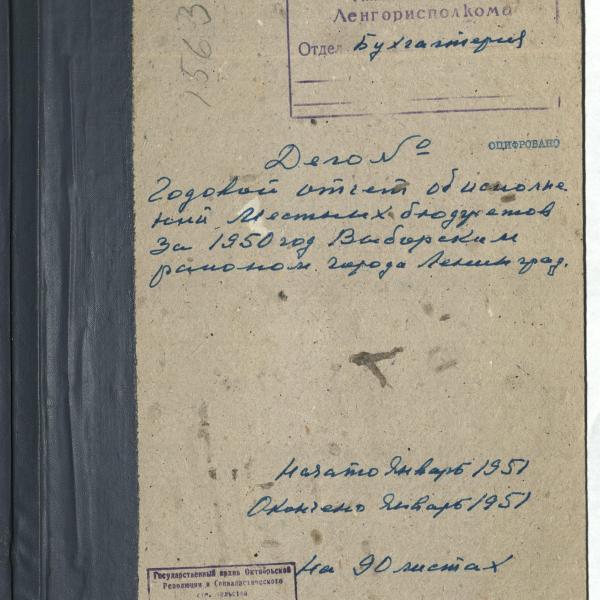 1563
Ленгорисполкома
Отдел Бухгалтерия
ОЦИФРОВАНО
Дело №
Годовой отчет об исполне
ний местных бюджетов
за 1950 год Выборским
районом города Ленинград.
Начато Январь 1951
Окончено Январь 1951
На 90 листах
Государственный архив Октябрьской
Революции и Социалистического